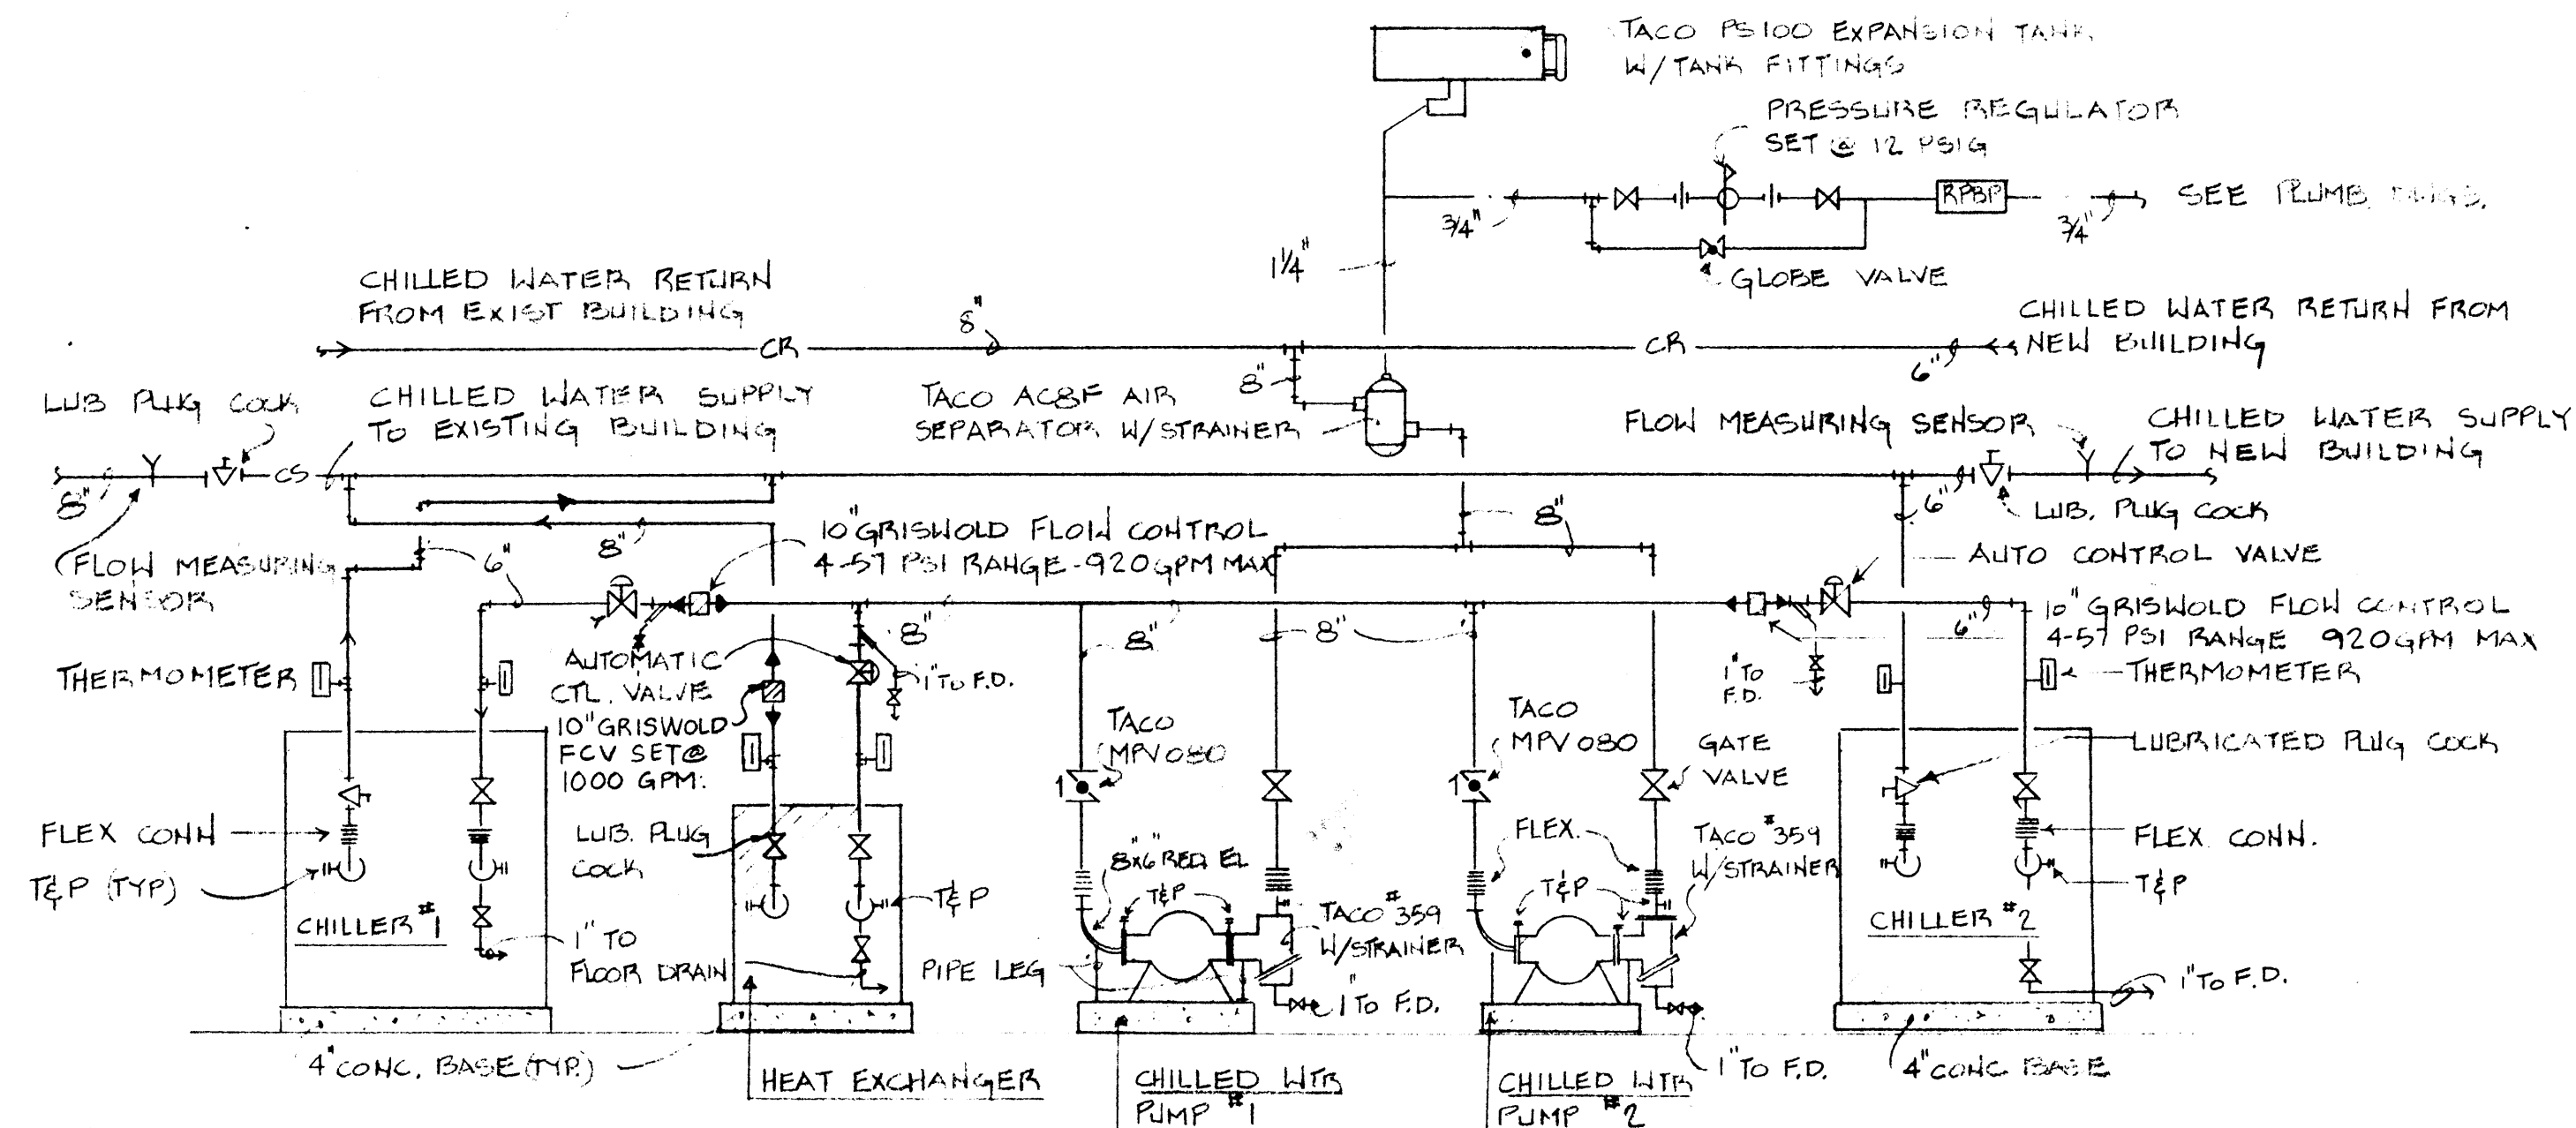 TACO PS100 EXPANSION TANK
W/TANK FITTINGS
PRESSURE REGULATOR
SET @ 12 PSIG
RPBP
SEE PLUMB. DWGS.
3/4"
3/4"
1 1/4"
GLOBE VALVE
CHILLED WATER RETURN
FROM EXIST BUILDING
8"
CR
CR
CHILLED WATER RETURN FROM
NEW BUILDING
6"
8"
LUB PLUG COCK
CHILLED WATER SUPPLY
TO EXISTING BUILDING
TACO AC8F AIR
SEPARATOR W/STRAINER
FLOW MEASURING SENSOR
CHILLED WATER SUPPLY
TO NEW BUILDING
8"
CS
6"
6"
LUB. PLUG COCK
8"
FLOW MEASURING
SENSOR
6"
8"
10" GRISWOLD FLOW CONTROL
4-57 PSI RANGE-920 GPM MAX
AUTO CONTROL VALVE
10" GRISWOLD FLOW CONTROL
4-57 PSI RANGE 920 GPM MAX
8"
8"
8"
6"
THERMOMETER
AUTOMATIC
CTL. VALVE
1" TO F.D.
1" TO
F.D.
THERMOMETER
10" GRISWOLD
FCV SET @
1000 GPM.
TACO
MPV080
TACO
MPV080
GATE
VALVE
LUBRICATED PLUG COCK
FLEX CONN
LUB. PLUG
COCK
8x6 RED. EL
FLEX.
TACO #359
W/STRAINER
FLEX CONN.
T&P (TYP)
T&P
T&P
T&P
T&P
CHILLER #1
1" TO
FLOOR DRAIN
PIPE LEG
TACO #359
W/STRAINER
CHILLER #2
1" TO F.D.
1" TO F.D.
4" CONC. BASE (TYP.)
HEAT EXCHANGER
CHILLED WTR
PUMP #1
CHILLED WTR
PUMP #2
1" TO F.D.
4" CONC BASE